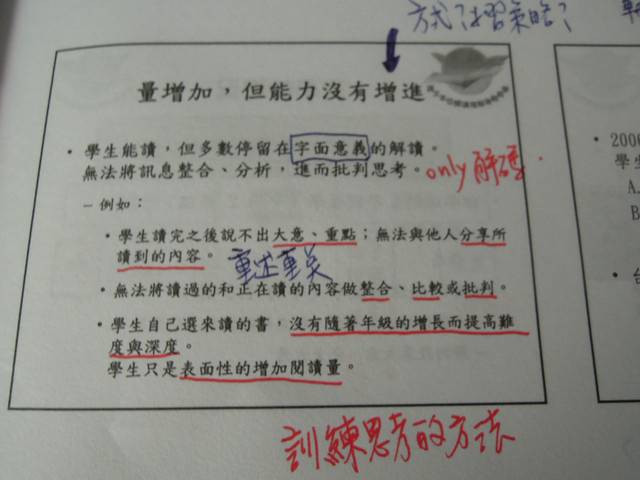 量增加，但能力沒有增進
• 學生能讀，但多數停留在字面意義的解讀。
無法將訊息整合、分析，進而批判思考。only 解碼.
– 例如：
• 學生讀完之後說不出大意、重點；無法與他人分享所
讀到的內容。
重述重点
• 無法將讀過的和正在讀的內容做整合、比較或批判。
• 學生自己選來讀的書，沒有隨著年級的增長而提高難
度與深度。
學生只是表面性的增加閱讀量。
訓練思考的方法
• 2006
學生
A.
B
•